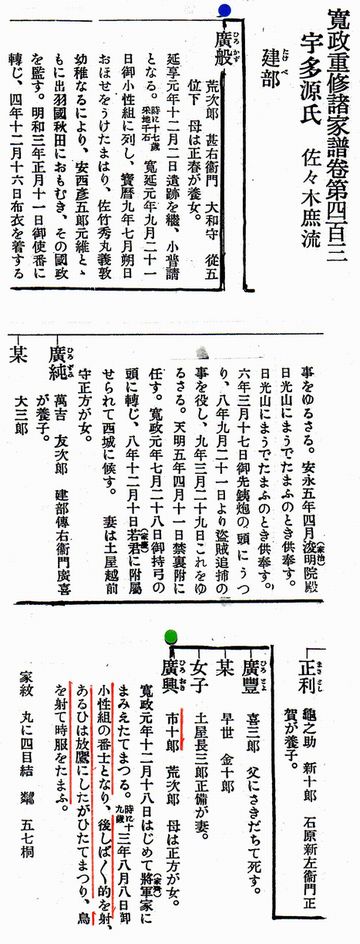 寛政重修諸家譜卷第四百三
宇多源氏　佐々木庶流
建部
たけべ
廣般
ひろかず
荒次郎　甚右衞門　大和守　從五
位下　母は正春が養女。
延享元年十二月二日遺跡を繼、小普請
となる。時に十七歳 采地千石　寛延元年九月二十一
日御小性組に列し、寶曆九年七月朔日
おほせをうけたまはり、佐竹秀丸義敦
幼稚なるにより、安西彥五郎元維とゝ
もに出羽國秋田におもむき、その國政
を監す。明和三年正月十一日御使番に
轉じ、四年十二月十六日布衣を着する
事をゆるさる。安永五年四月浚明院殿（家治）
日光山にまうでたまふのとき供奉す。
日光山にまうでたまふのとき供奉す。
六年三月十七日御先銕炮の頭にうつ
り、八年九月二十一日より盜賊追捕の
事を役し、九年三月二十九日これをゆ
るさる。天明五年四月十一日禁裏附に
任す。寛政元年七月二十八日御持弓の
頭に轉じ、八年十二月十日若君（家慶）に附屬
せられて西城に候す。　妻は土屋越前
守正方が女。
廣純
ひろずみ
萬吉　友次郎　建部傳右衞門廣喜
が養子。
某
大三郎
正利
まさとし
龜之助　新十郎　石原新左衞門正
賀が養子。
廣豐
ひろとよ
喜三郎　父にさきだちて死す。
某
早世　金十郎
女子
土屋長三郎正備が妻。
廣興
ひろおき
市十郎　荒次郎　母は正方が女。
寛政元年十二月十八日はじめて將軍家（家齊）に
まみえたてまつる。時に十九歳　三年八月八日御
小性組の番士となり、後しば〱的を射、
あるひは放鷹にしたがひたてまつり、鳥
を射て時服をたまふ。
家紋　丸に四目結　鸐　五七桐